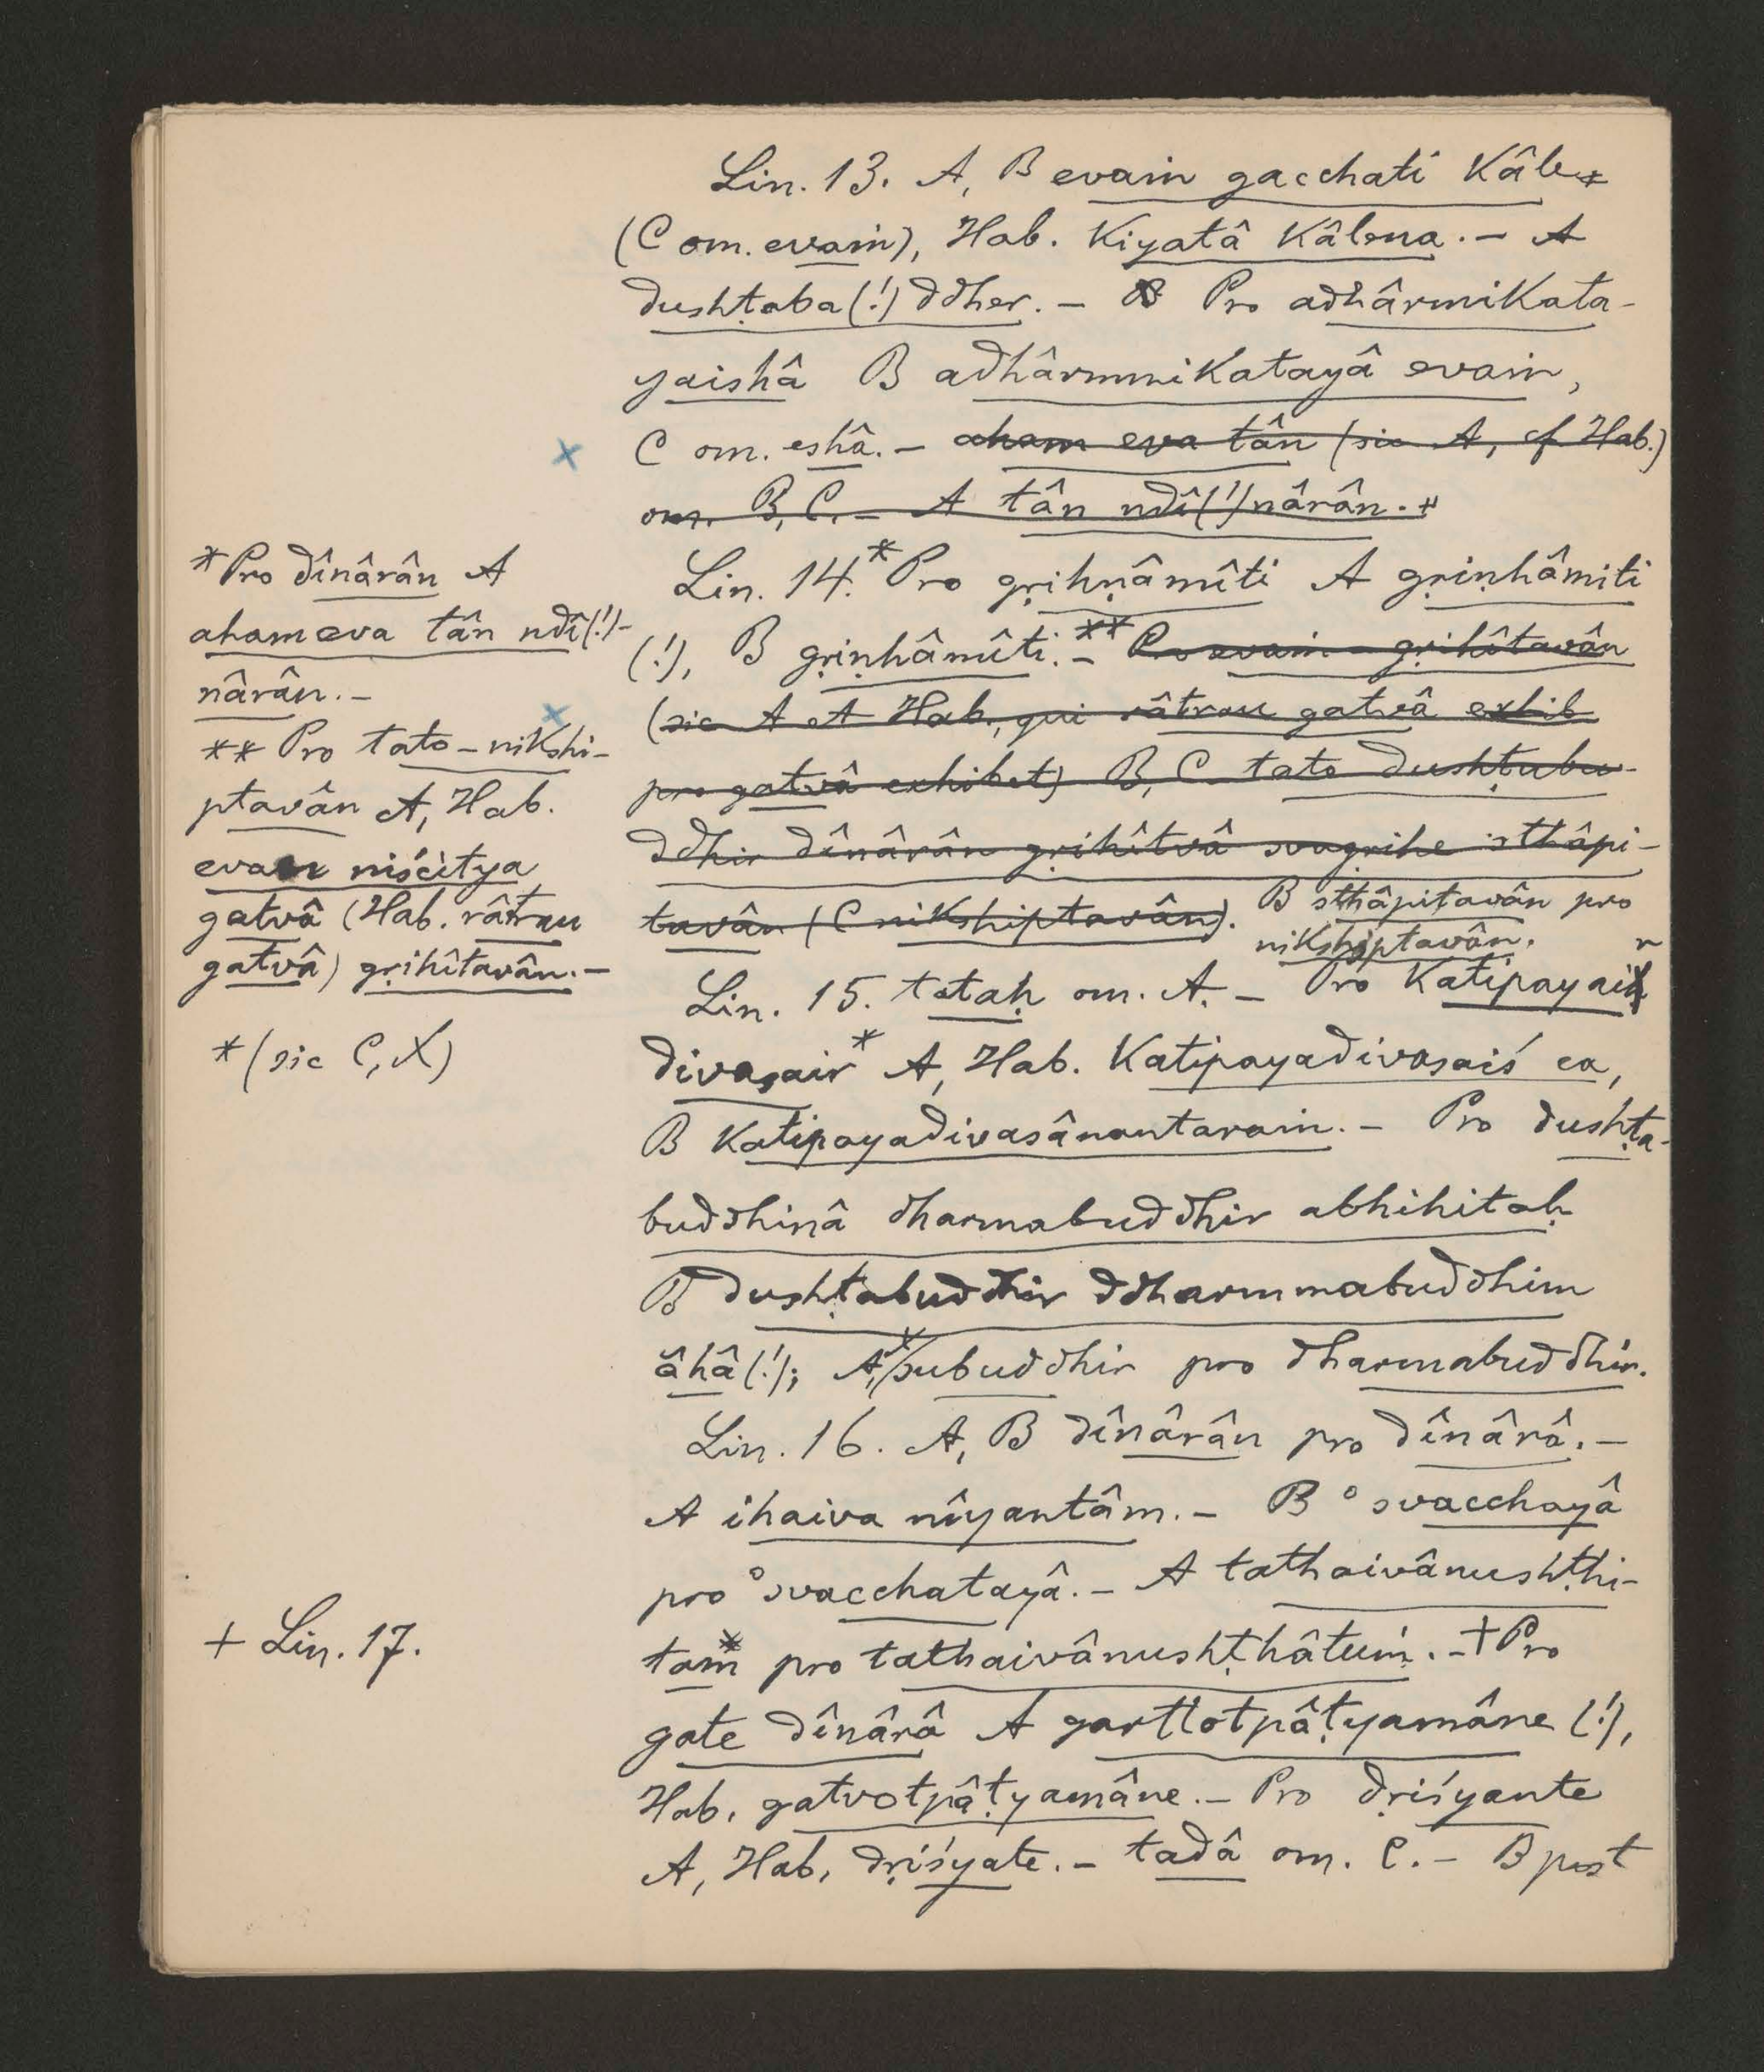 Lin. 13. A, B evaṁ gacchati kâle
(C om. evaṁ), Hab. kiyatâ kâlena. – A
dushṭaba(!)ddher. – Pro adhârmikata-
yaishâ B adhârmmikatayâ evaṁ,
C om. eshâ. – aham eva tân (sic A, cf Hab.)
om. B, C. – A tân ndî(!)nârân. –
Lin. 14.* Pro gṛihṇâmîti A gṛiṇhâmiti
(!), B gṛiṇhâmîti. –** Pro evaṁ – gṛihîtavân
(sic A et Hab., qui râtrau gatvâ exhib
pro gatvâ exhibet) B, C tato dushṭabu-
ddhir dînârân gṛihîtvâ svagṛihe sthâpi-
tavân (C nikshiptavân). B sthâpitavân pro
nikshiptavân.
Lin. 15. tataḥ om. A. – Pro katipayair
divasair* A, Hab. katipayadivasaiś ca,
B katipayadivasânantaraṁ. – Pro dushṭa-
buddhinâ dharmabuddhir abhihitaḥ
B dushṭabuddhir ddharmmabuddhim
âhâ(!); A, subuddhir pro dharmabuddhir.
Lin. 16. A, B dînârân pro dînârâ. –
A ihaiva nîyantâm. – B °svacchayâ
pro °svacchatayâ. – A tathaivânushṭhi-
tam* pro tathaivânushṭhâtuṁ. – + Pro
gate dînârâ A garttotpâṭyamâne (!),
Hab. gatvotpâṭyamâne. – Pro dṛiśyante
A, Hab. dṛiśyate. – tadâ om. C. – B post
*Pro dînârân A
aham eva tân ndî(!)-
nârân. –
** Pro tato – nikshi-
ptavân A, Hab.
evaṁ niścitya
gatvâ (Hab. râtrau
gatvâ) gṛihîtavân. –
*(sic C, X)
+ Lin. 17.